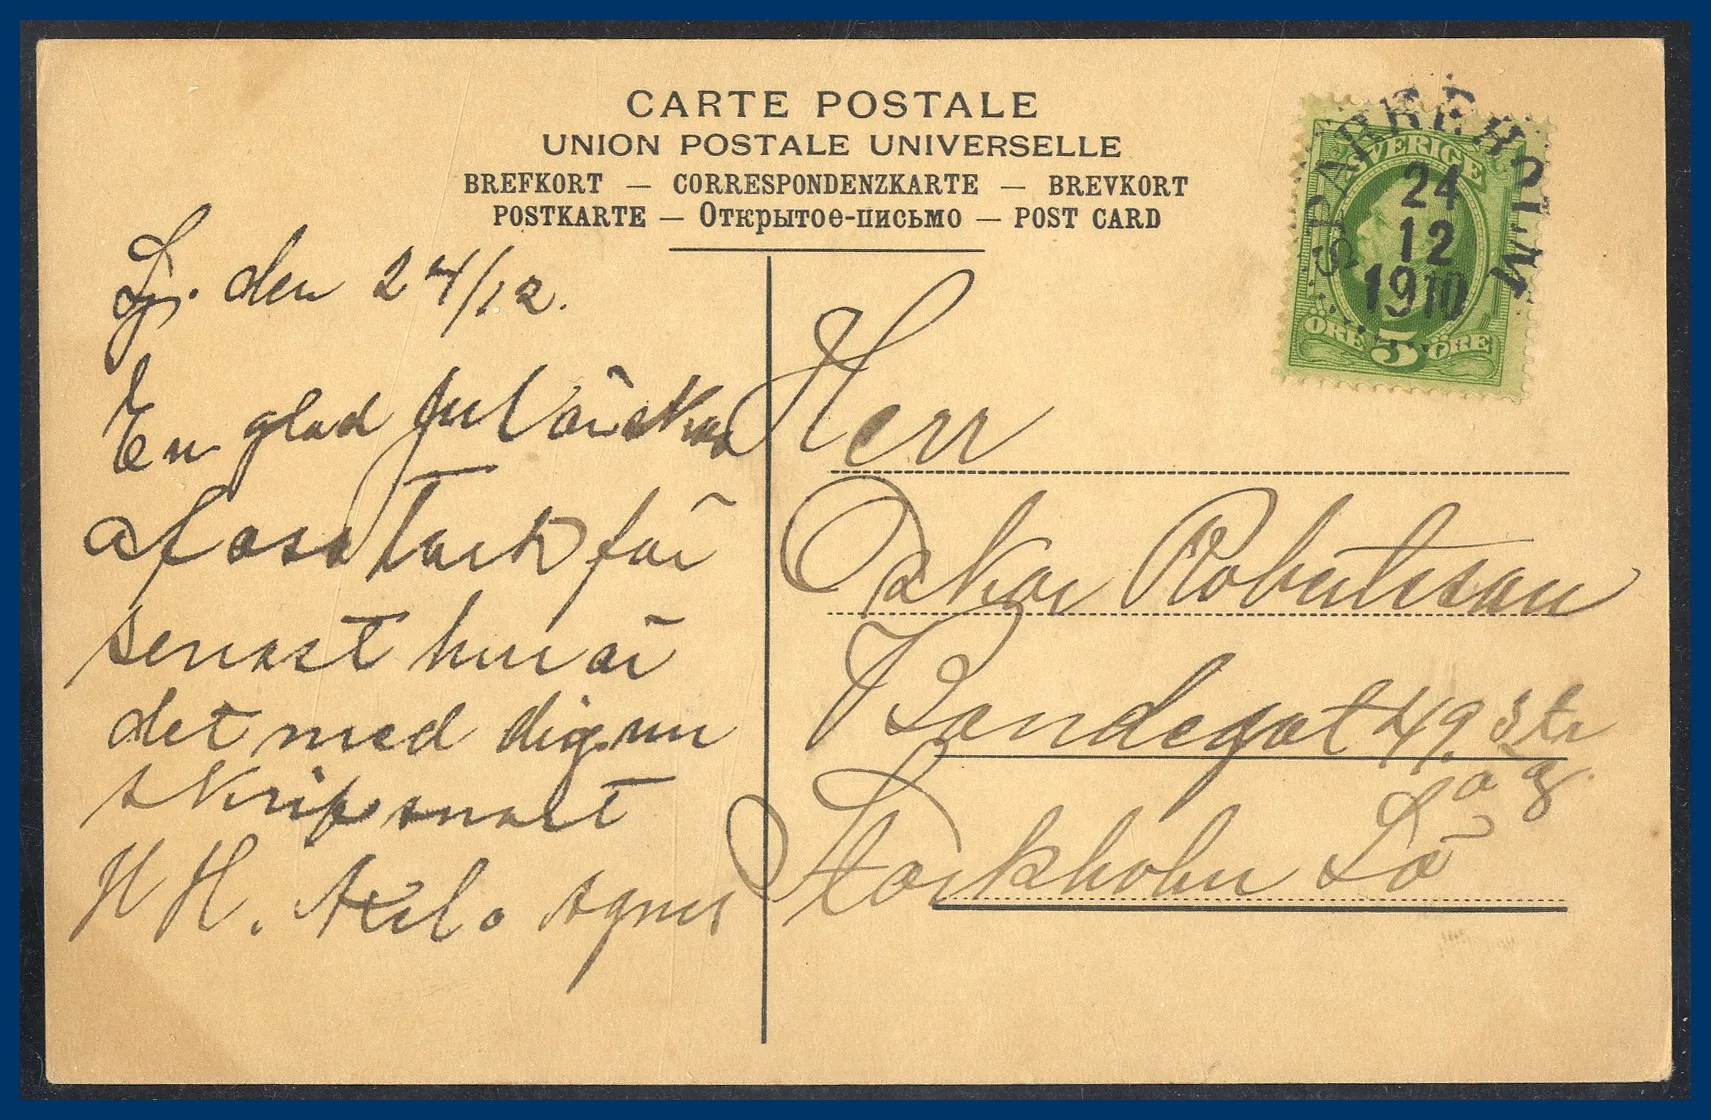 CARTE POSTALE
UNION POSTALE UNIVERSELLE
BREFKORT — CORRESPONDENZKARTE — BREVKORT
POSTKARTE — Открытое-письмо — POST CARD
SPARREHOLM
24
12
1910
SVERIGE
ÖRE 5 ÖRE
den 24/12.
En glad Jul önskas
af oss Tack för
senast hur är
det med dig nu
skrif snart
H H. Axel o Agnes
Herr
Oskar Robertsson
Bondegat 49 3 tr
ö g.
Stockholm Sö